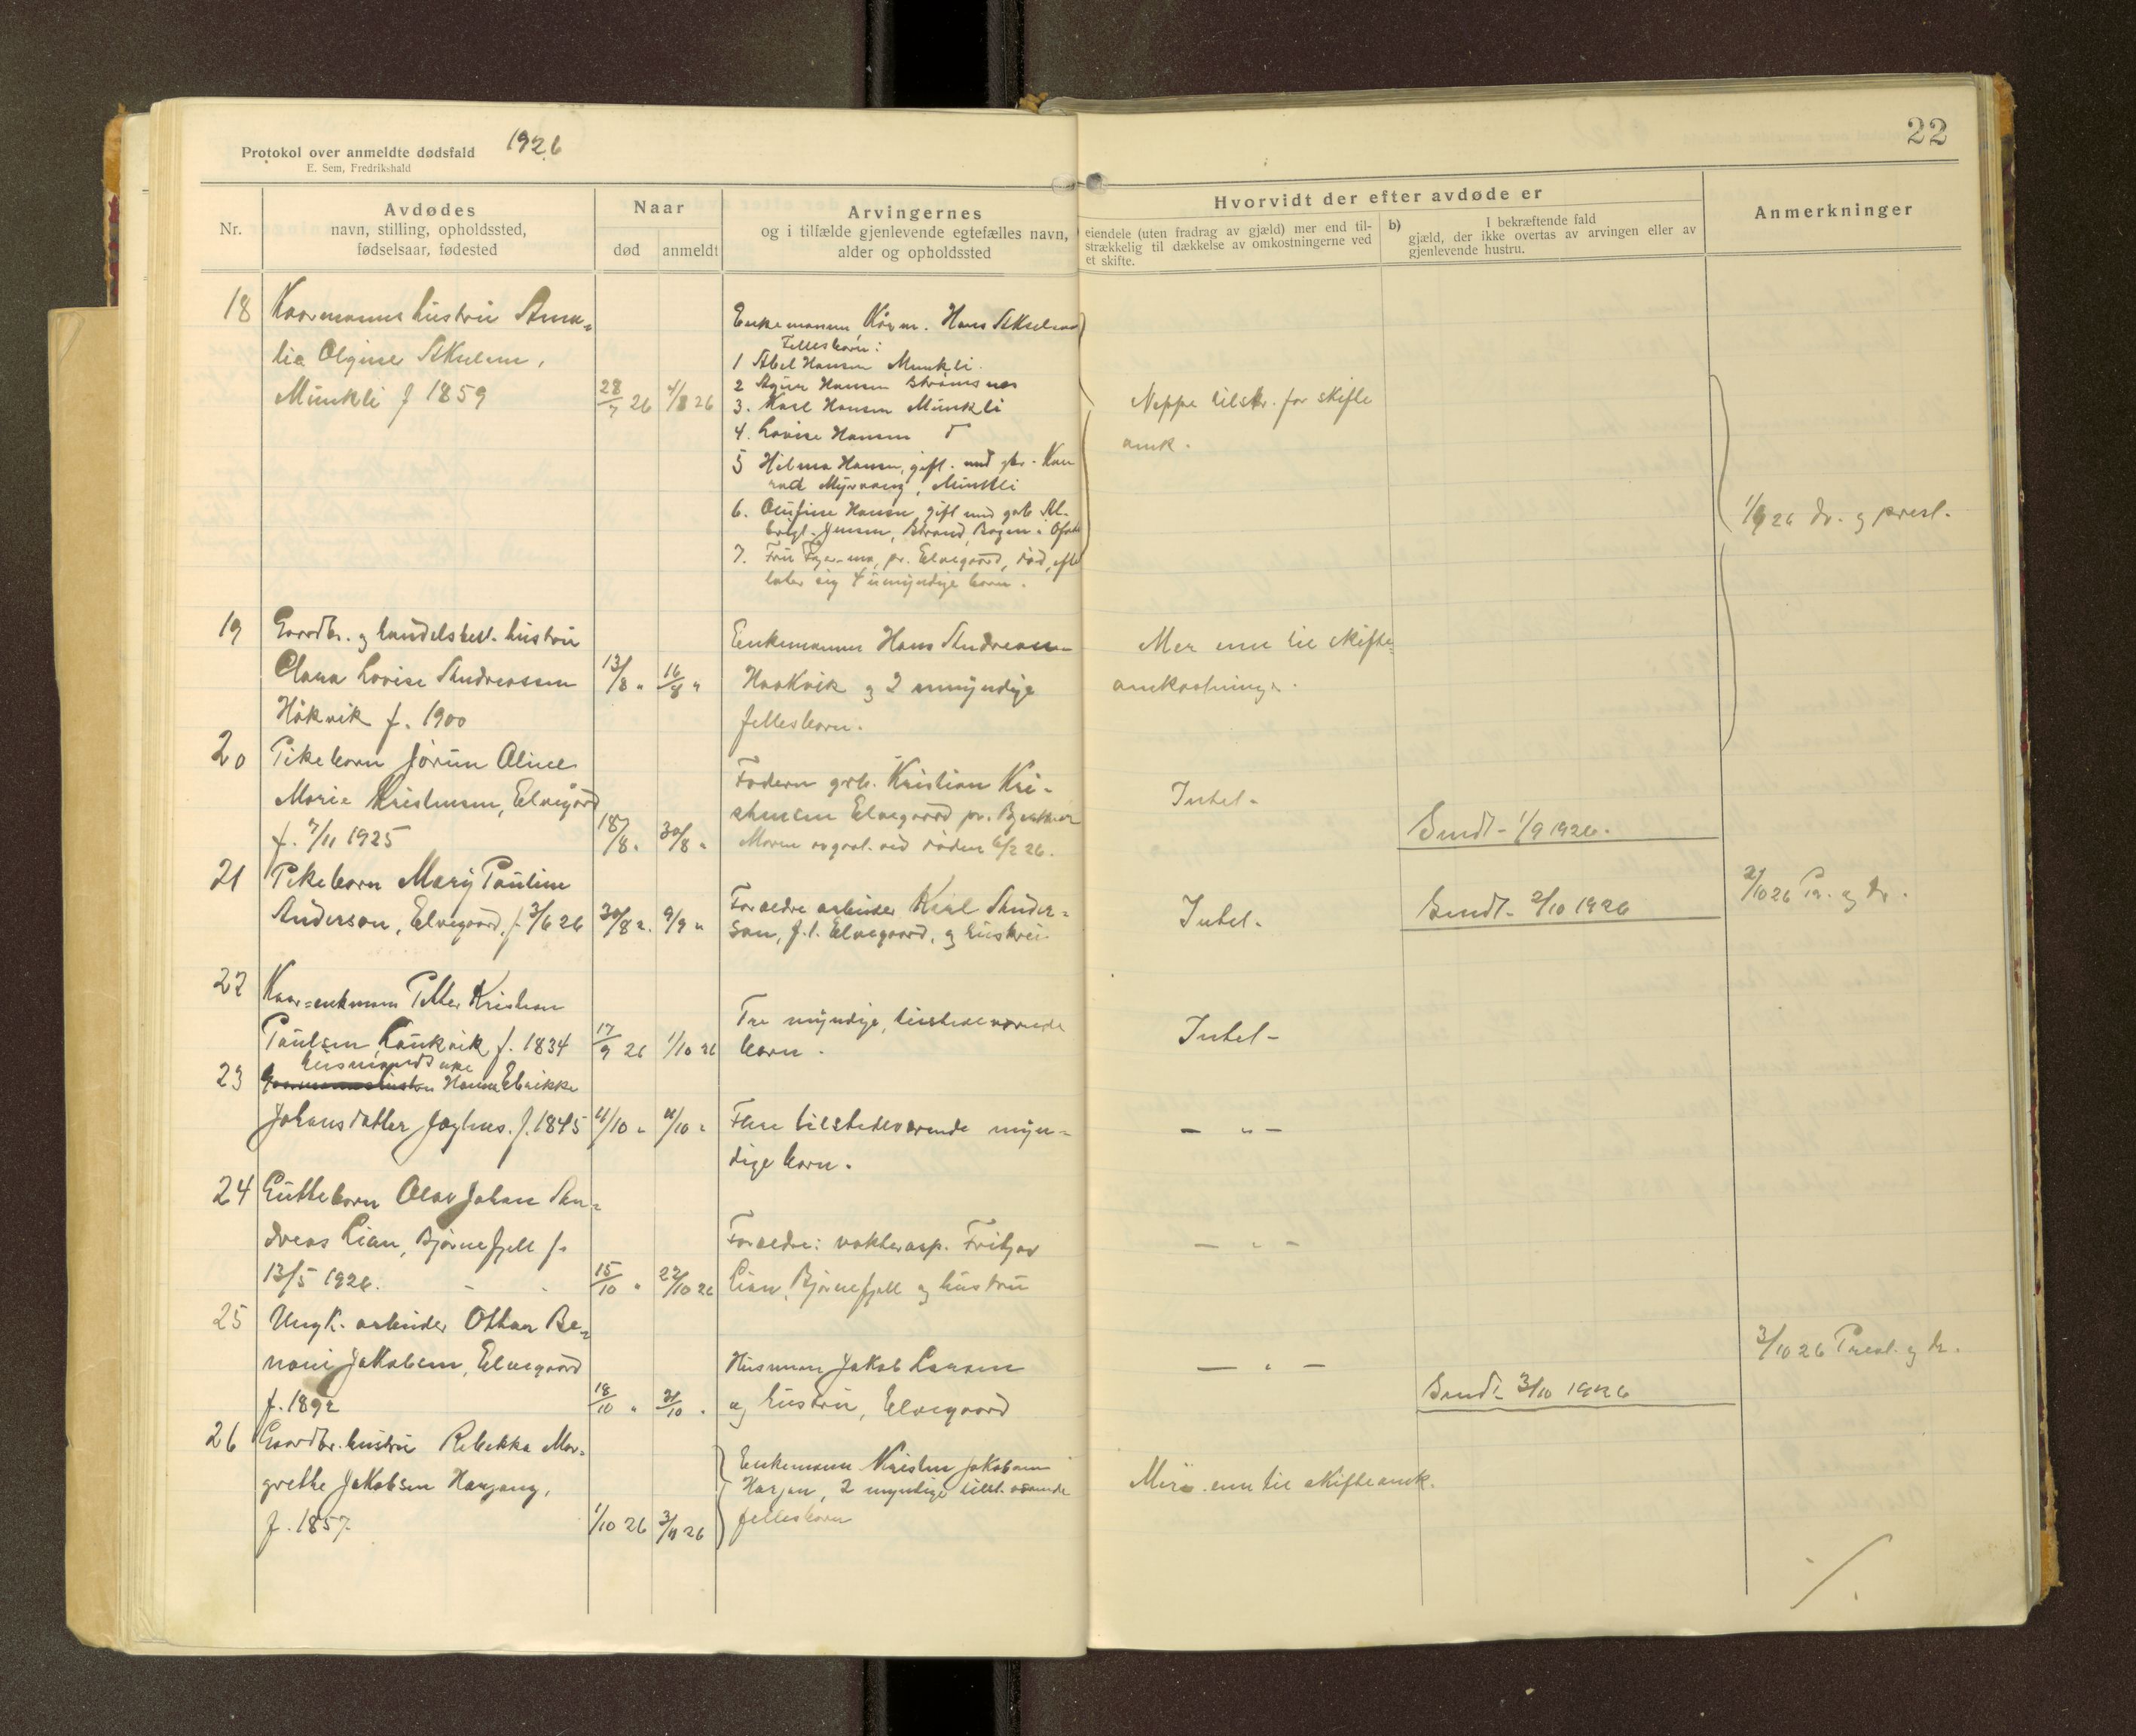 Protokol over anmeldte dødsfald 1926
E. Sem, Fredrikshald
22
Nr.
Avdødes
navn, stilling, opholdssted,
fødselsaar, fødested
Naar
død
anmeldt
Arvingernes
og i tilfælde gjenlevende egtefælles navn,
alder og opholdssted
Hvorvidt der efter avdøde er
eiendele (uten fradrag av gjæld) mer end til-
strækkelig til dækkelse av omkostningerne ved
et skifte.
b) I bekræftende fald
gjæld, der ikke overtas av arvingen eller av
gjenlevende hustru.
Anmerkninger
18 Kaarmanns hustru Ama-
lie Olgine Akselsen,
Munkli f 1859
28/7 26
4/8 26
Enkemann Kårm. Hans Akselsen
Felles born:
1 Abel Hansen Munkli.
2 Hansen Strømsnes
3. Karl Hansen Munkli
4. Lovise Hansen
5 Hilma Hansen, gift. med gbr. Kon
rad Myrvang, Munkli
6. Olufine Hansen, gift med gbr Al-
brigt. Jensen, Strand, Bogen i Ofoten
7. Fru pr. Elvegaard, død, efter
later sig 4 umyndige born.
Neppe tilstr. for skifte
omk.
1/9 26 dr. og prest.
19 Gaardbr. og handelsbest. hustru
Clara Lovise Andreassen
Håkvik f. 1900
13/8 "
16/8 "
Enkemann Hans Andreassen
Haakvik og 2 umyndige
felles born.
Mer enn til skifte-
omkostninger.
20 Pikeborn Jorun Oline
Marie Kristensen, Elvegård
f. 7/11 1925
18/8 "
30/8 "
Faderen grb. Kristian Kri-
stensen Elvegaard pr. Bjerkvik
Moren avgaat ved døden 6/2 26.
Intet-
Sendt - 1/9 1926.
21 Pikeborn Mary Pauline
Anderson, Elvegaard, f. 3/6 26
30/8 "
9/9 "
Foreldre arbeider Karl Ander-
son, f. t. Elvegaard, og hustru
Intet-
Sendt- 2/10 1926
2/10 26 Pr. og dr.
22 Kaar-enkemann Petter Kristian
Paulsen Laukvik f. 1834
17/9 26
1/10 26
Tre myndige, tilstedeværende
born.
Intet-
23 Husmands enke
Hanna Elrikke
Johansdatter f. 1845
4/10 "
4/10 "
Flere tilstedeværende myn-
dige born.
- " -
24 Gutteborn Olav Johan An-
dreas Lian, Bjørnefjell f.
13/5 1926.
15/10 "
22/10 26
Foreldre: vokterasp. Fritjov
Lian, Bjørnefjell og hustru
- " -
25 Ungk. arbeider Ottar Be-
noni Jakobsen, Elvegaard
f. 1892
18/10 "
21/10 "
Husmann Jakob Larsen
og hustru, Elvegaard
- " -
Sendt 3/10 1926
3/10 26 Prest. og dr.
26 Gaardbr. hustru Rebekka Mar-
grethe Jakobsen Hargang,
f. 1857
1/10 26
3/11 26
Enkemann Kristen Jakobsen
Harjan, 2 myndige tilst. værende
felles born
Mer enn til skifteomk.